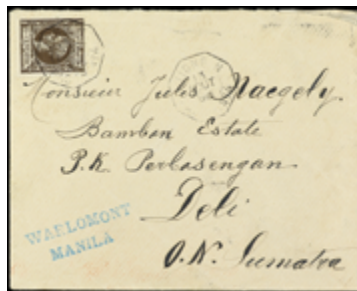 Monsieur Jules Naegely.
Bamban Estate
P.K. Perbosengan.
Deli
O.K. Sumatra
WARLOMONT
MANILA